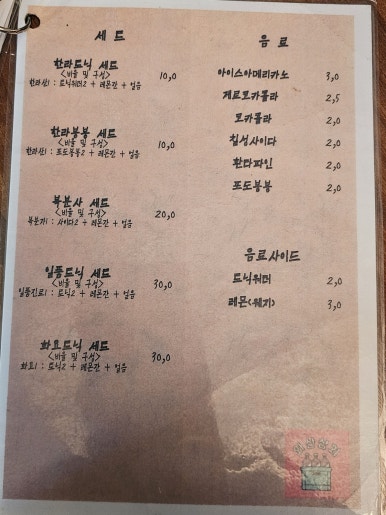 세 드
한라드닉 세드
<비율 및 구성>
한라산1 : 토닉워터2 + 레몬간 + 얼음
10,0
한라봉봉 세드
<비율 및 구성>
한라산1 : 포도봉봉2 + 레몬간 + 얼음
10,0
복분사 세드
<비율 및 구성>
복분자1 : 사이다2 + 레몬간 + 얼음
20,0
일품드닉 세드
<비율 및 구성>
일품진로1 : 토닉2 + 레몬간 + 얼음
30,0
화요드닉 세드
<비율 및 구성>
화요1 : 토닉2 + 레몬간 + 얼음
30,0
음 료
아이스아메리카노 3,0
제로코카콜라 2,5
코카콜라 2,0
칠성사이다 2,0
환타파인 2,0
포도봉봉 2,0
음료사이드
토닉워터 2,0
레몬(웨지) 3,0